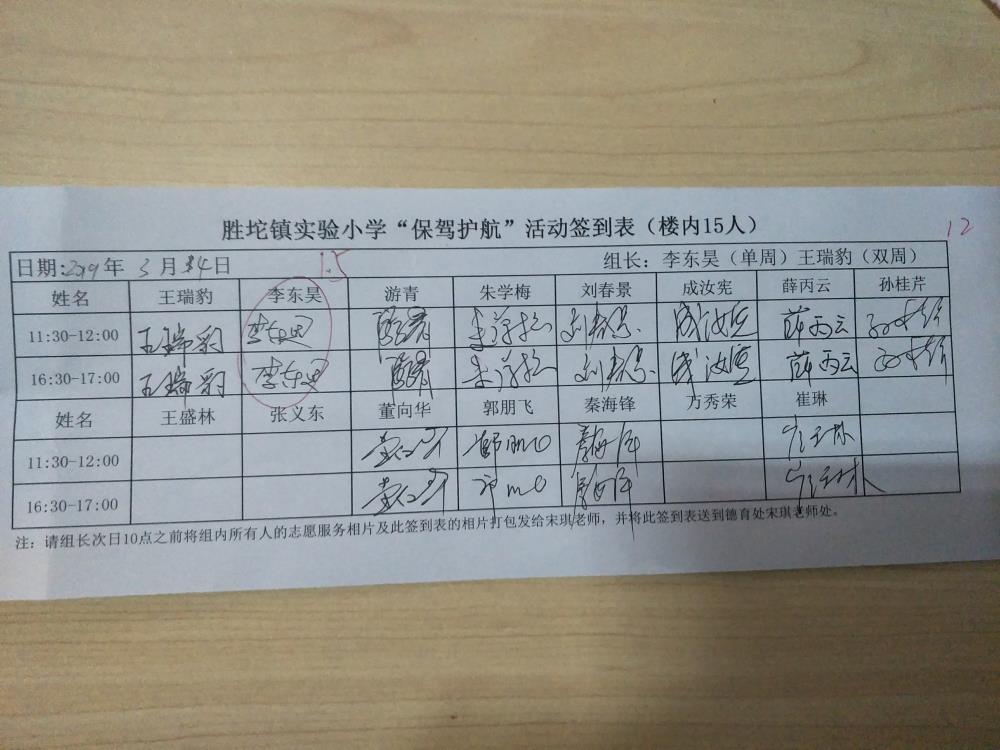 胜坨镇实验小学“保驾护航”活动签到表（楼内15人）
12
日期:2019年 3月14日 1.5 组长：李东昊（单周）王瑞豹（双周）
姓名 王瑞豹 李东昊 游青 朱学梅 刘春景 成汝宪 薛丙云 孙桂芹
11:30-12:00 王瑞豹 李东昊 游青 朱学梅 刘春景 成汝宪 薛丙云 孙桂芹
16:30-17:00 王瑞豹 李东昊 游青 朱学梅 刘春景 成汝宪 薛丙云 孙桂芹
姓名 王盛林 张义东 董向华 郭朋飞 秦海锋 方秀荣 崔琳
11:30-12:00 董向华 郭朋飞 秦海锋 崔琳
16:30-17:00 董向华 郭朋飞 秦海锋 崔琳
注：请组长次日10点之前将组内所有人的志愿服务相片及此签到表的相片打包发给宋琪老师，并将此签到表送到德育处宋琪老师处。